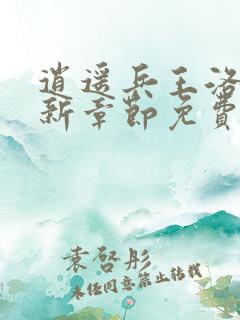 逍遥兵王洛
新章节免费
袁启彤
未经同意禁止转载